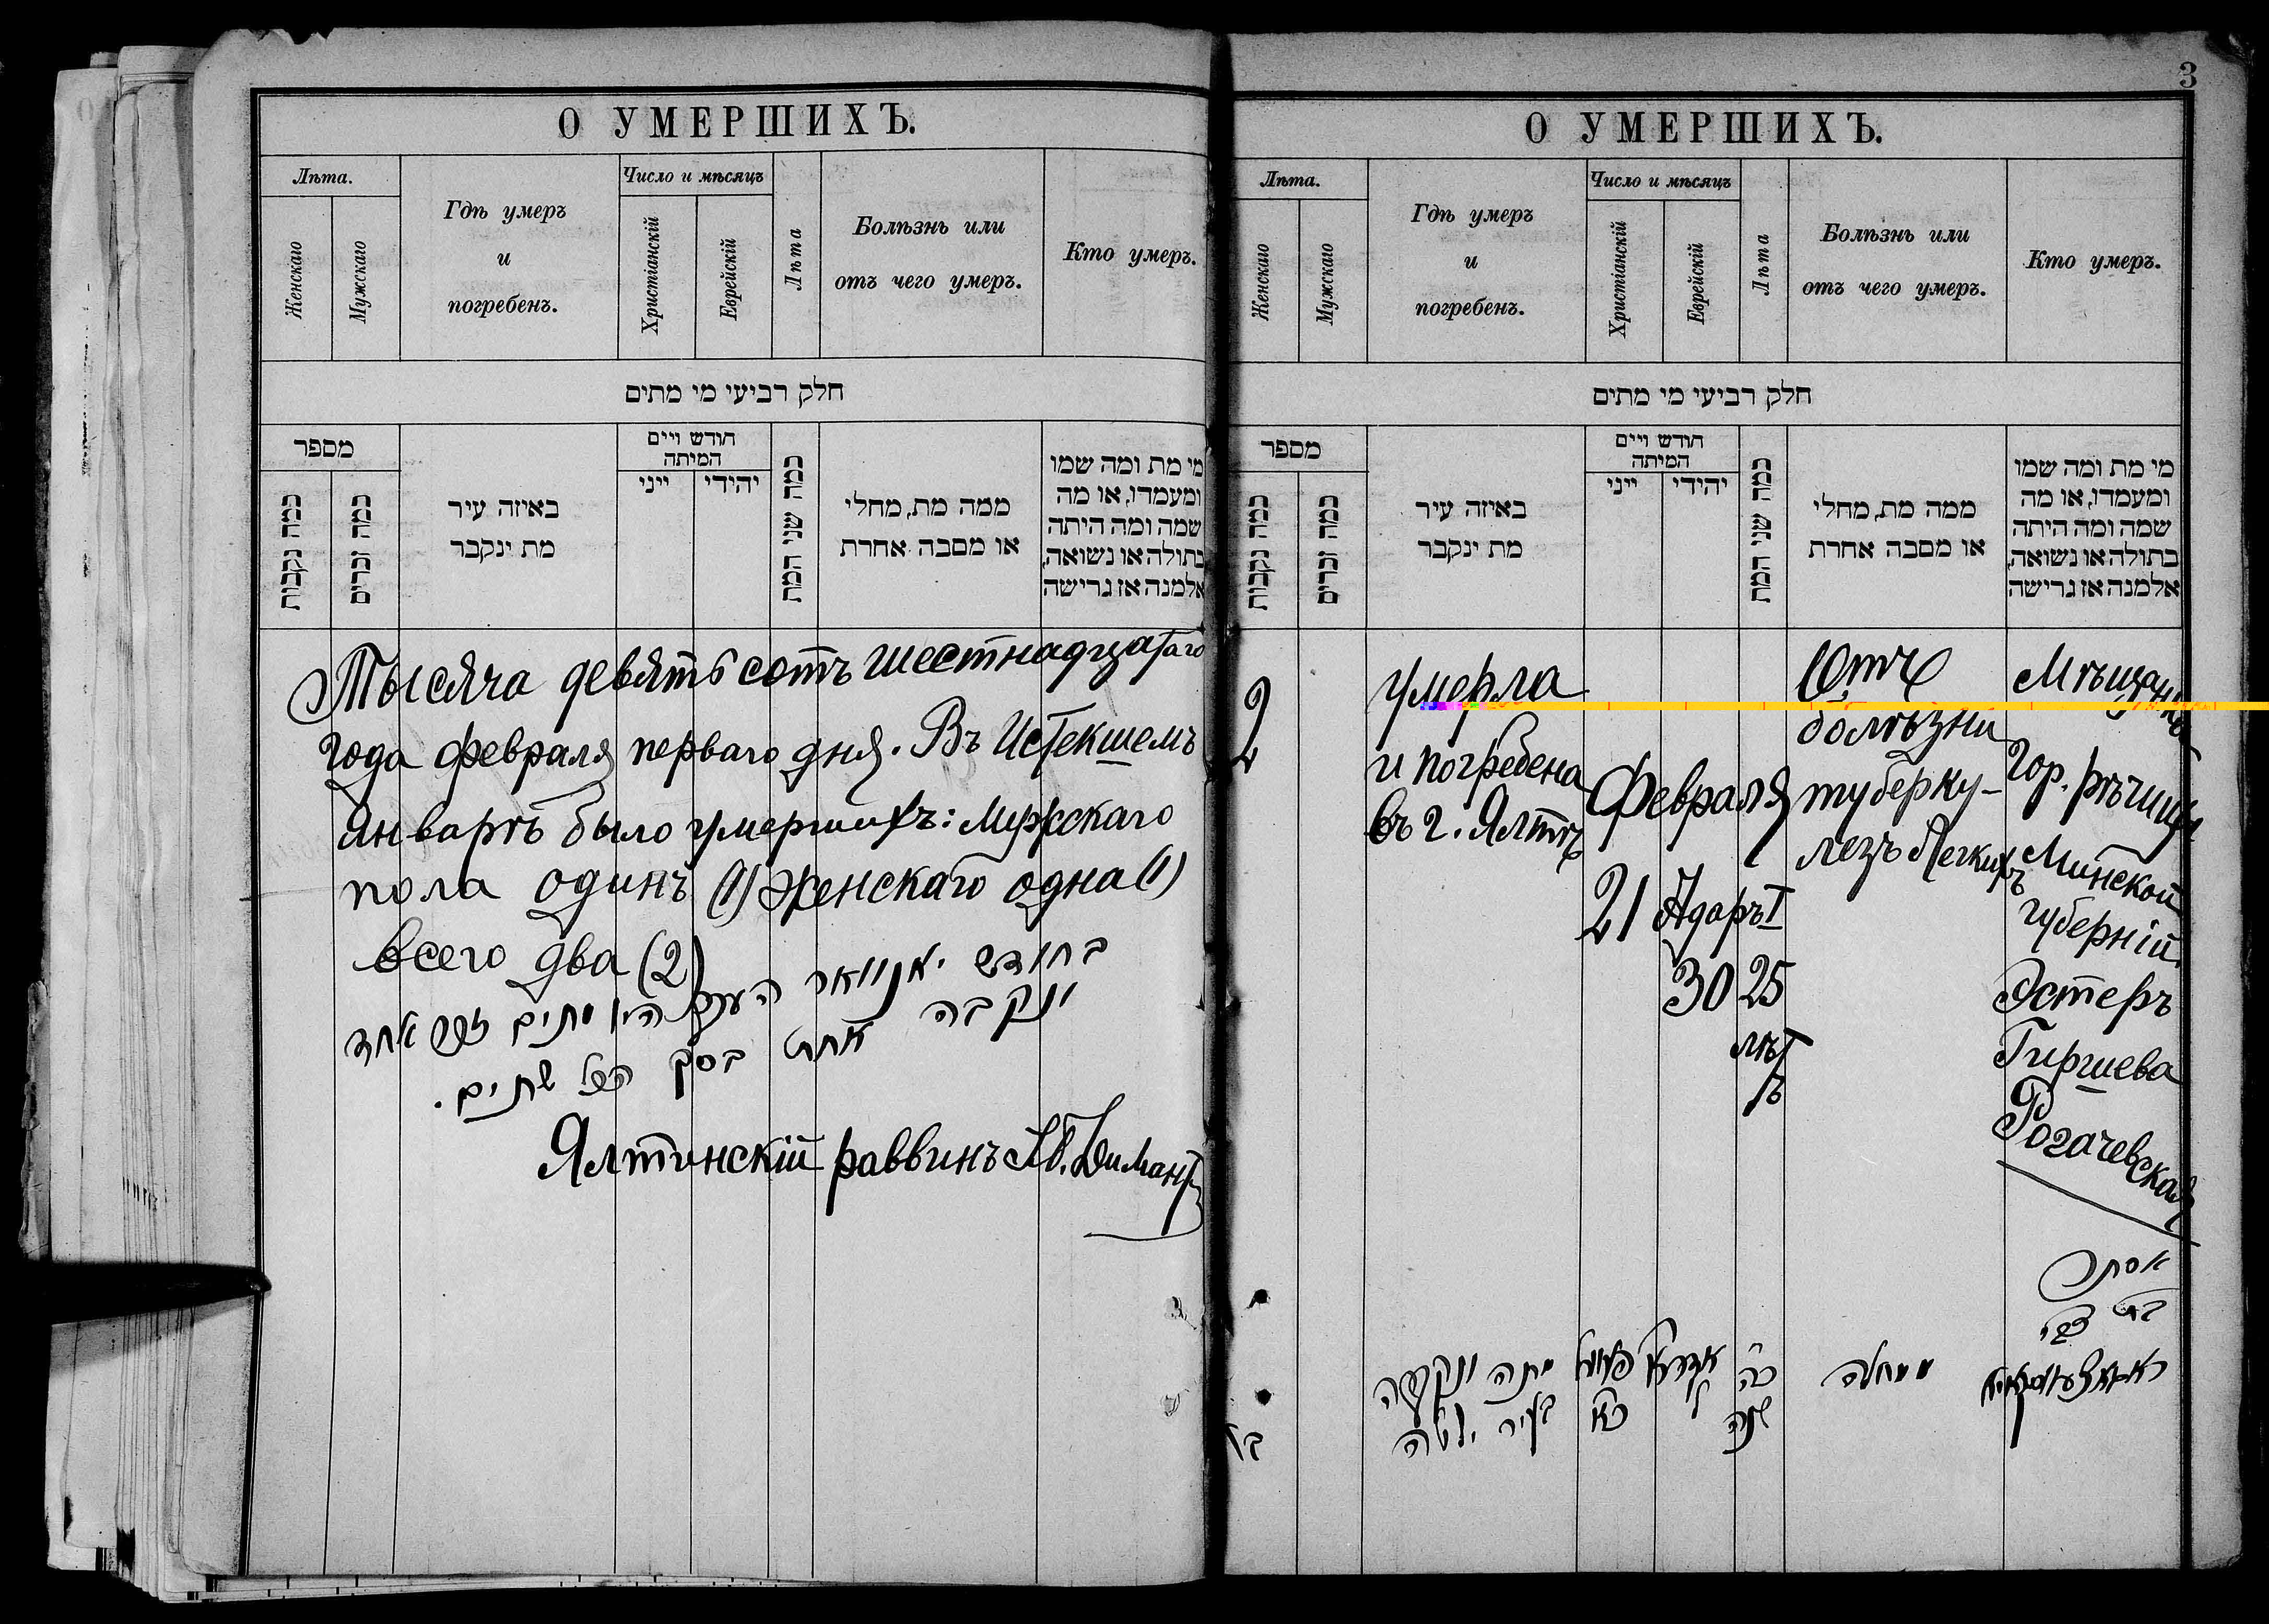 О УМЕРШИХЪ.
Лѣта.
Женскаго
Мужскаго
Гдѣ умеръ
и
погребенъ.
Число и мѣсяцъ
Христіанскій
Еврейскій
Лѣта
Болѣзнь или
отъ чего умеръ.
Кто умеръ.
חלק רביעי מי מתים
מספר
כמה נקבות
כמה זכרים
באיזה עיר
מת ינקבר
חודש ויים
המיתה
ייני
יהודי
כמה שני המת
ממה מת, מחלי
או מסבה אחרת
מי מת ומה שמו
ומעמדו, או מה
שמה ומה היתה
בתולה או נשואה,
אלמנה אז גרישה
Тысяча девятьсотъ шестнадцатаго
года февраля перваго дня. Въ истекшемъ
январѣ было умершихъ: мужскаго
пола одинъ (1) женскаго одна (1)
всего два (2)
בחודש יאנוואר היו מתים זכר אחד
ונקבה אחת בסך הכל שתים.
Ялтинскій раввинъ Аб. Димантъ
3
О УМЕРШИХЪ.
Лѣта.
Женскаго
Мужскаго
Гдѣ умеръ
и
погребенъ.
Число и мѣсяцъ
Христіанскій
Еврейскій
Лѣта
Болѣзнь или
отъ чего умеръ.
Кто умеръ.
חלק רביעי מי מתים
מספר
כמה נקבות
כמה זכרים
באיזה עיר
מת ינקבר
חודש ויים
המיתה
ייני
יהודי
כמה שני המת
ממה מת, מחלי
או מסבה אחרת
מי מת ומה שמו
ומעמדו, או מה
שמה ומה היתה
בתולה או נשואה,
אלמנה אז גרישה
2
умерла
и погребена
въ г. Ялтѣ
Февраля
21
Адаръ I
30
25
лѣт
ъ
Отъ
болѣзни
туберку-
лезъ легкихъ
Мѣщанка
гор. рѣчицы
Минской
губерній
Эстеръ
Гиршева
Рогачевская
אסתר
בת צבי
מתה ונקברה
בעיר ילטה
כא
אדר א
ל
כה
שנה
ממחלה